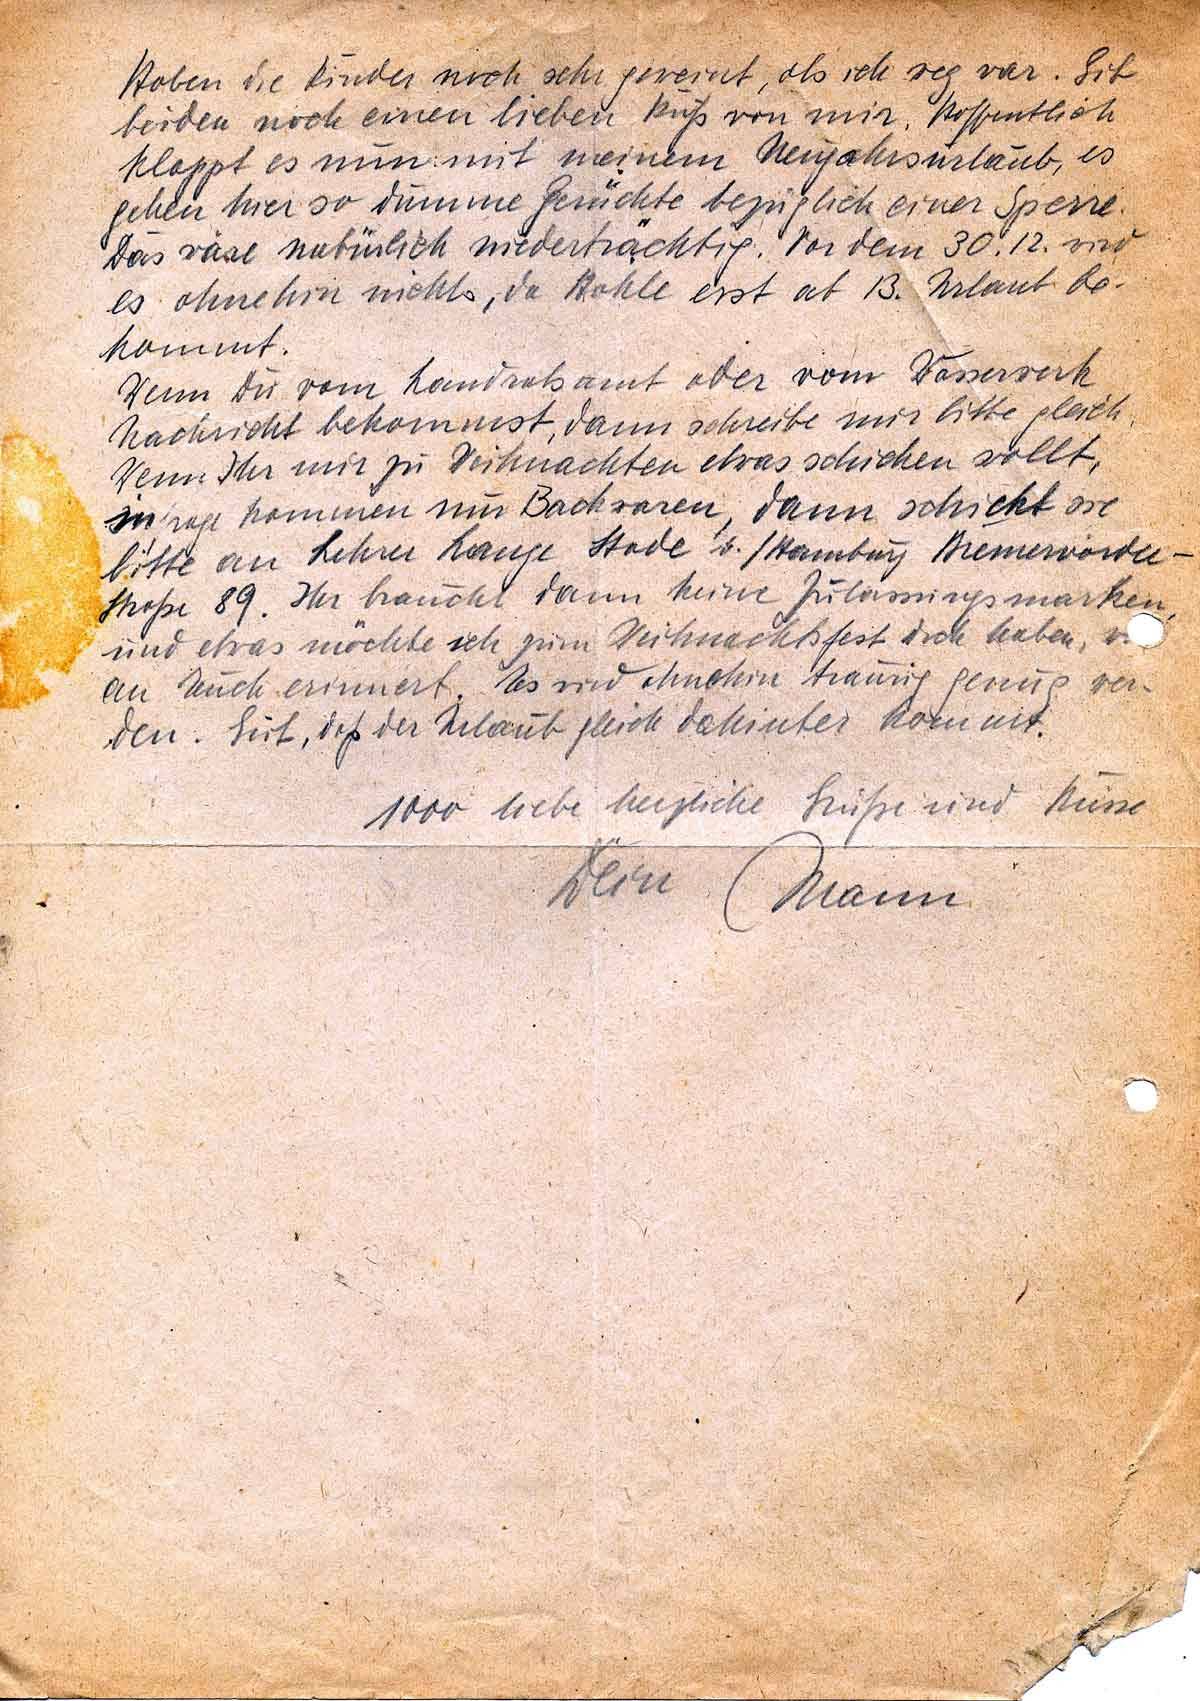 Haben die Kinder noch sehr geweint, als ich weg war. Gib
beiden noch einen lieben Kuß von mir. Hoffentlich
klappt es nun mit meinem Neujahrsurlaub, es
gehen hier so dumme Gerüchte bezüglich einer Sperre.
Das wäre natürlich niederträchtig. Vor dem 30.12. wird
es ohnehin nichts, da Hohle erst ab 13. Urlaub be-
kommt.
Wenn Du vom Landratsamt oder vom Wasserwerk
Nachricht bekommst, dann schreibe mir bitte gleich.
Wenn Ihr mir zu Weihnachten etwas schicken wollt,
infrage kommen nur Backwaren, dann schickt sie
bitte an Lehrer Lange Stade b./Hamburg Bremervörder-
Straße 89. Ihr braucht dann keine Zulassungsmarken,
und etwas möchte ich zum Weihnachtsfest doch haben,
an Euch erinnert. Es wird ohnehin traurig genug wer-
den. Gut, daß der Urlaub gleich dahinter kommt.
1000 liebe herzliche Grüße und Küsse
Dein Mann